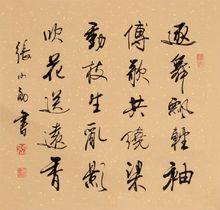 逐舞飄輕袖
傳歌共繞梁
動枝生亂影
吹花送遠香
張小勁書